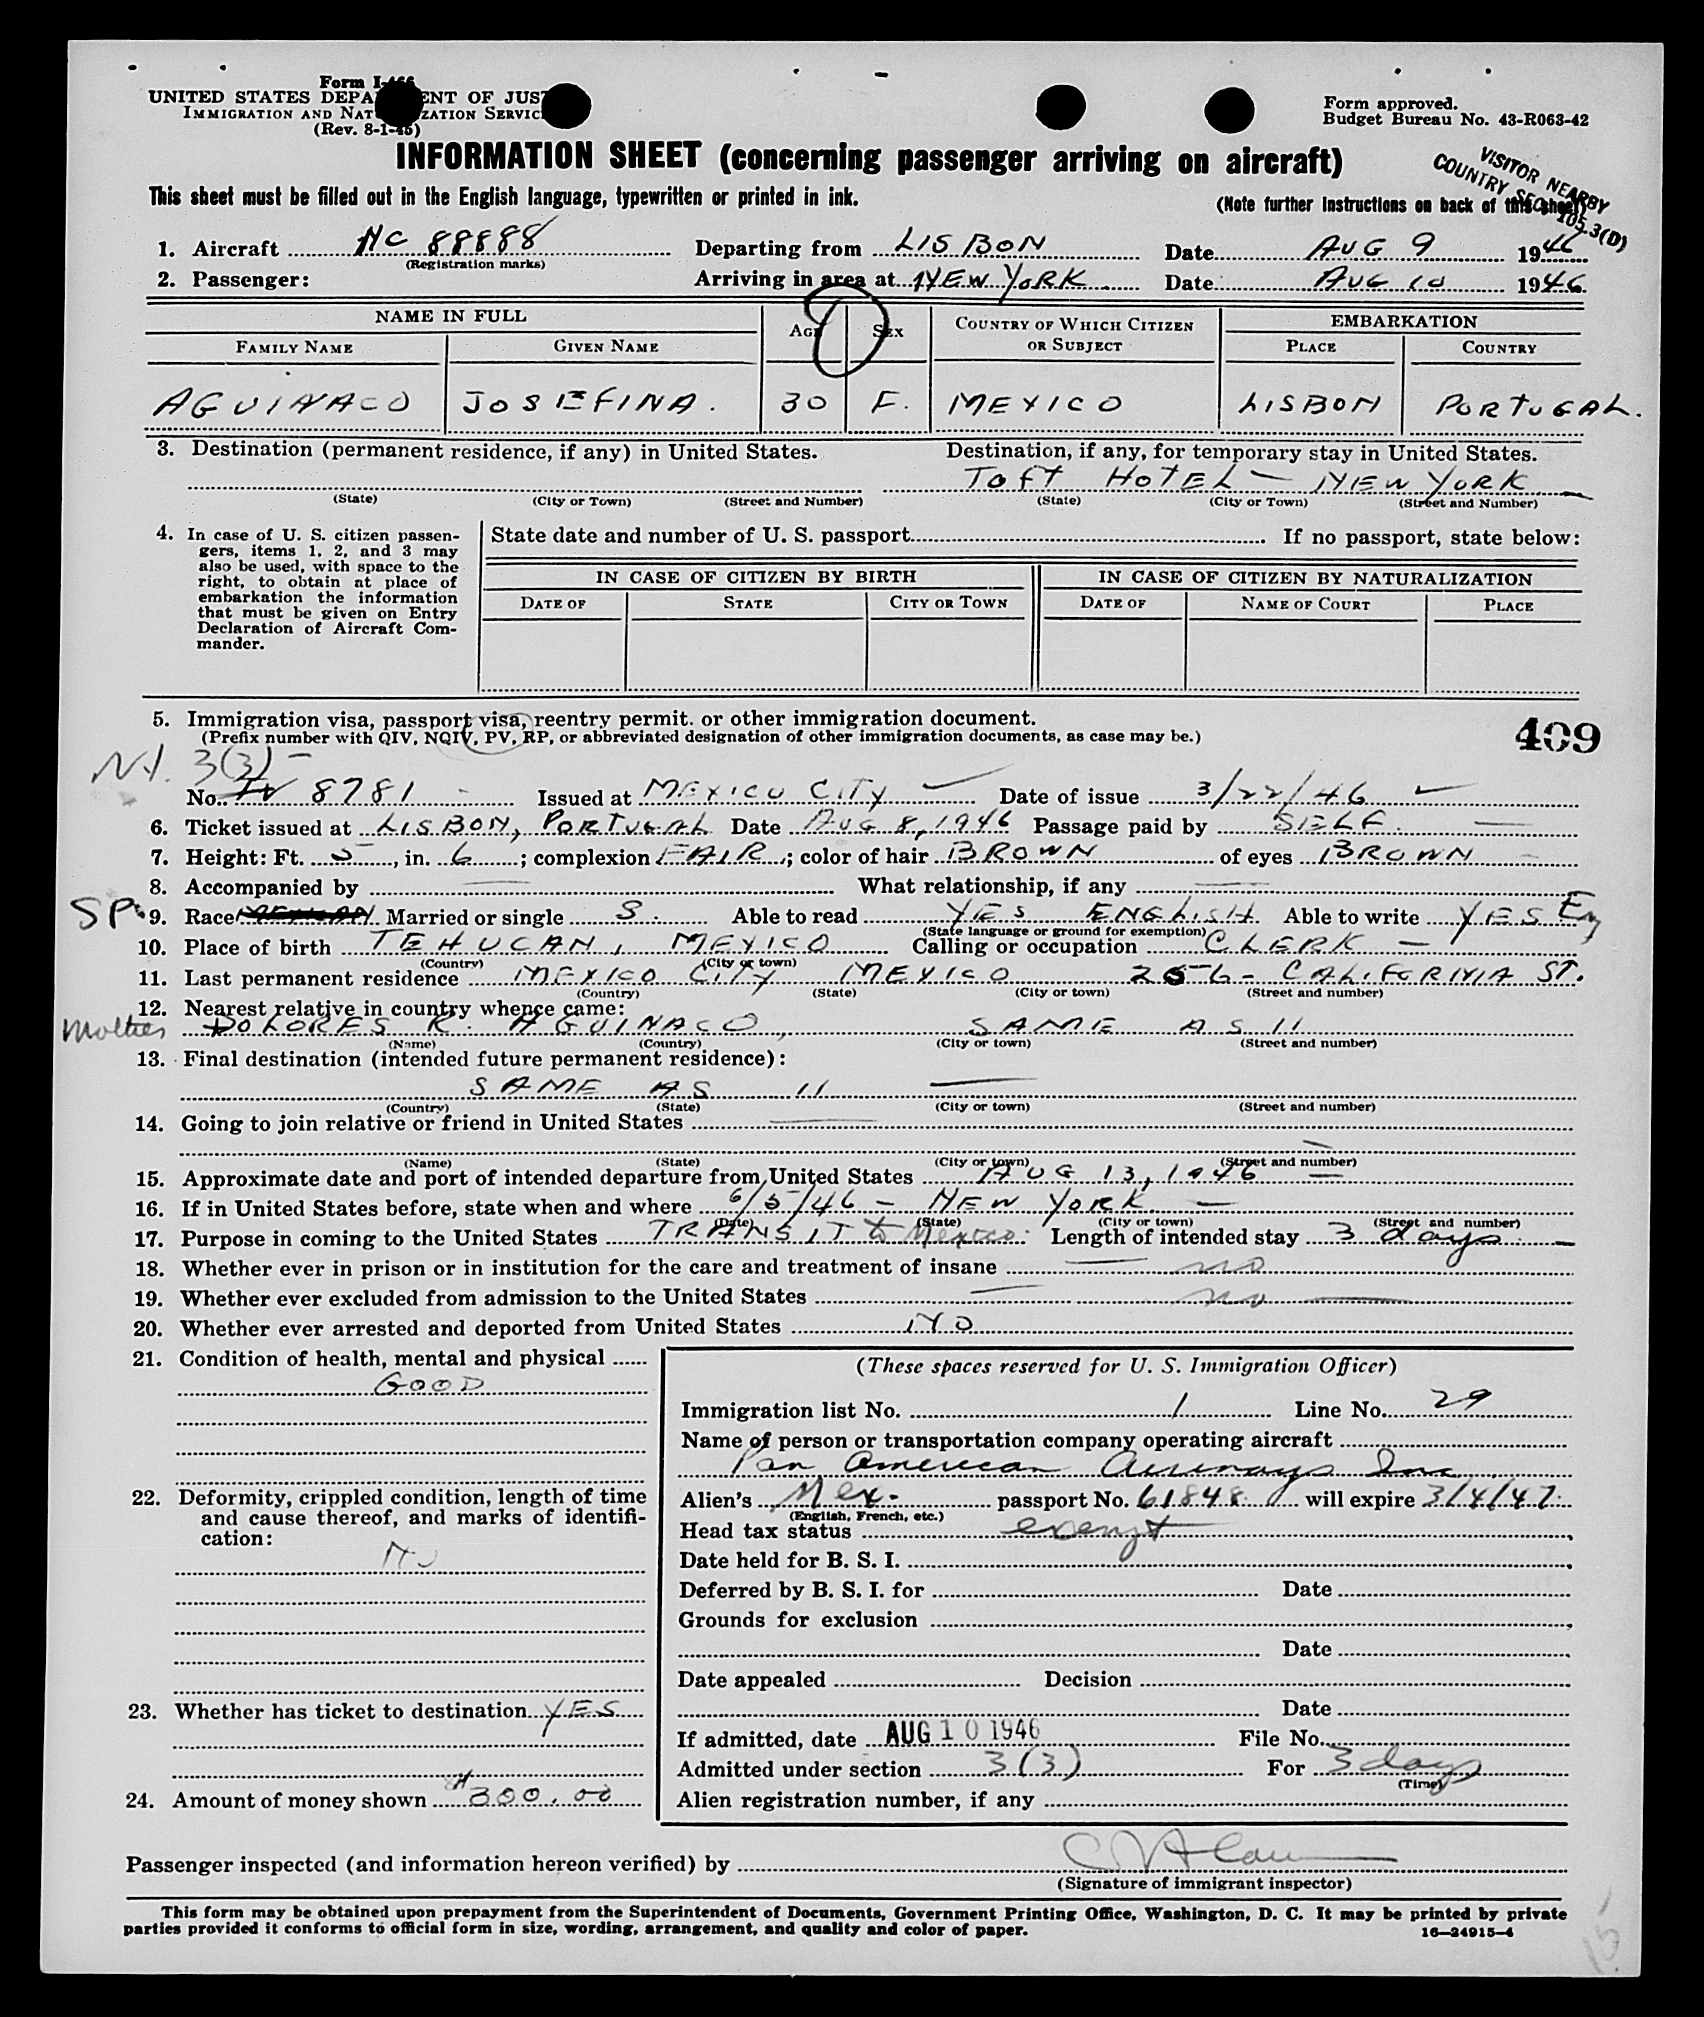 Form I-466
UNITED STATES DEPARTMENT OF JUSTICE
IMMIGRATION AND NATURALIZATION SERVICE
(Rev. 8-1-45)
Form approved.
Budget Bureau No. 43-R063-42
INFORMATION SHEET (concerning passenger arriving on aircraft)
VISITOR NEARBY
COUNTRY SEC. 105.3(D)
This sheet must be filled out in the English language, typewritten or printed in ink.
(Note further instructions on back of this sheet)
1. Aircraft NC 88888 Departing from LISBON Date AUG 9 1946
(Registration marks)
2. Passenger: Arriving in area at NEW YORK Date AUG 10 1946
NAME IN FULL AGE SEX COUNTRY OF WHICH CITIZEN OR SUBJECT EMBARKATION
FAMILY NAME GIVEN NAME PLACE COUNTRY
AGUINACO JOSEFINA. 30 F. MEXICO LISBON PORTUGAL.
3. Destination (permanent residence, if any) in United States. Destination, if any, for temporary stay in United States.
TAFT HOTEL — NEW YORK
(State) (City or Town) (Street and Number) (State) (City or Town) (Street and Number)
4. In case of U. S. citizen passengers, items 1, 2, and 3 may also be used, with space to the right, to obtain at place of embarkation the information that must be given on Entry Declaration of Aircraft Commander.
State date and number of U. S. passport If no passport, state below:
IN CASE OF CITIZEN BY BIRTH IN CASE OF CITIZEN BY NATURALIZATION
DATE OF STATE CITY OR TOWN DATE OF NAME OF COURT PLACE
5. Immigration visa, passport visa, reentry permit. or other immigration document.
(Prefix number with QIV, NQIV, PV, RP, or abbreviated designation of other immigration documents, as case may be.)
409
N.Y. 3(3) —
No. TV 8781 Issued at MEXICO CITY Date of issue 3/22/46
6. Ticket issued at LISBON, PORTUGAL Date AUG 8, 1946 Passage paid by SELF.
7. Height: Ft. 5, in. 6; complexion FAIR; color of hair BROWN of eyes BROWN
8. Accompanied by — What relationship, if any —
SP. 9. Race Married or single S. Able to read YES ENGLISH Able to write YES Eng
(State language or ground for exemption)
10. Place of birth TEHUCAN, MEXICO Calling or occupation CLERK —
(Country) (City or town)
11. Last permanent residence MEXICO CITY MEXICO 256 - CALIFORNIA ST.
(Country) (State) (City or town) (Street and number)
12. Nearest relative in country whence came:
Mother DOLORES R. AGUINACO, SAME AS 11
(Name) (Country) (City or town) (Street and number)
13. Final destination (intended future permanent residence):
SAME AS 11 —
(Country) (State) (City or town) (Street and number)
14. Going to join relative or friend in United States —
(Name) (State) (City or town) (Street and number)
15. Approximate date and port of intended departure from United States AUG 13, 1946 —
16. If in United States before, state when and where 6/5/46 — NEW YORK —
(Date) (State) (City or town) (Street and number)
17. Purpose in coming to the United States TRANSIT to Mexico. Length of intended stay 3 days —
18. Whether ever in prison or in institution for the care and treatment of insane — no
19. Whether ever excluded from admission to the United States — no —
20. Whether ever arrested and deported from United States NO
21. Condition of health, mental and physical
GOOD
22. Deformity, crippled condition, length of time and cause thereof, and marks of identification:
NO
23. Whether has ticket to destination YES
24. Amount of money shown $300.00
(These spaces reserved for U. S. Immigration Officer)
Immigration list No. 1 Line No. 29
Name of person or transportation company operating aircraft
Pan American Airways Inc
Alien's Mex. passport No. 61848 will expire 3/4/47.
(English, French, etc.)
Head tax status exempt
Date held for B. S. I.
Deferred by B. S. I. for Date
Grounds for exclusion
Date
Date appealed Decision
Date
If admitted, date AUG 10 1946 File No.
Admitted under section 3(3) For 3 days
(Time)
Alien registration number, if any
Passenger inspected (and information hereon verified) by
(Signature of immigrant inspector)
This form may be obtained upon prepayment from the Superintendent of Documents, Government Printing Office, Washington, D. C. It may be printed by private
parties provided it conforms to official form in size, wording, arrangement, and quality and color of paper.
16—24915-4
15